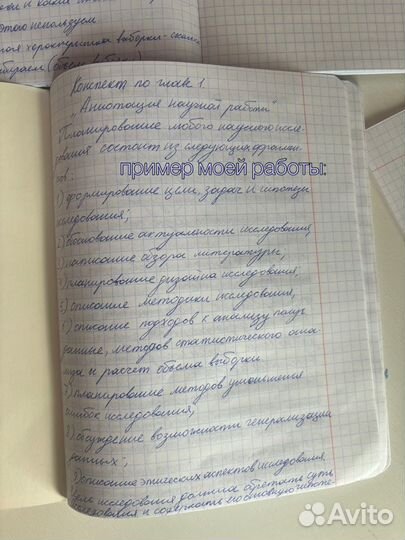 этого непользуем
ная характеристика выборки-сколь
бираем (объём выборки)
Конспект по главе 1.
"Аннотация научной работы"
Планирование любого научного иссле-
дования состоит из следующих фрагмен-
тов:
пример моей работы:
1) формирование цели, задач и гипотезы
исследования;
2) обоснование актуальности исследования,
3) написание обзора литературы,
4) планирование дизайна исследования,
5) описание методики исследования,
6) описание подходов к анализу полу
данных, методов статистического ана-
лиза и расчёт объёма выборки.
7) планирование методов уменьшения
ошибок исследования;
8) обсуждение возможности генерализации
данных;
9) описание этических аспектов исследования.
Цель исследования должна отражать суть
исследования и содержать
Avito